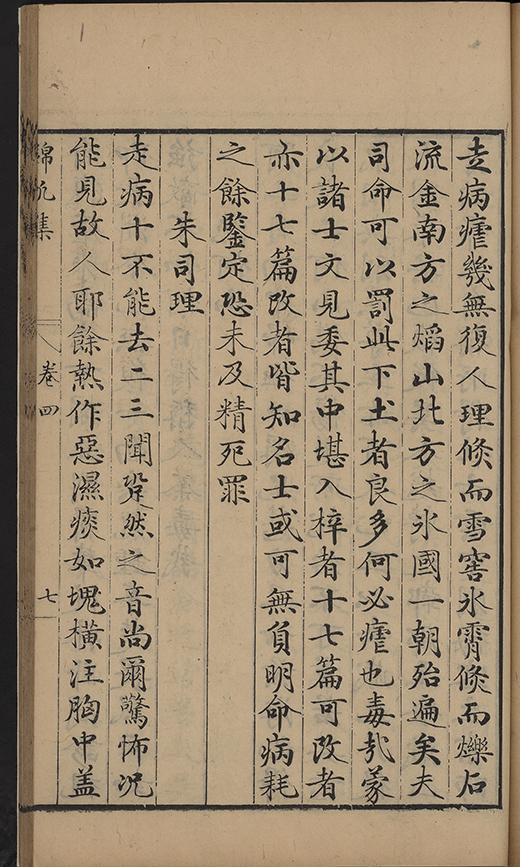 走病瘧幾無復人理倐而雪窖氷霄倐而爍石
流金南方之熖山北方之氷國一朝殆遍矣夫
司命可以罰此下土者良多何必瘧也毒哉蒙
以諸士文見委其中堪入梓者十七篇可改者
亦十七篇改者皆知名士或可無負明命病耗
之餘鑒定恐未及精死罪
朱司理
走病十不能去二三聞跫然之音尚爾驚怖况
能見故人耶餘熱作惡濕痰如塊橫注胸中盖
錦帆集
卷四
七